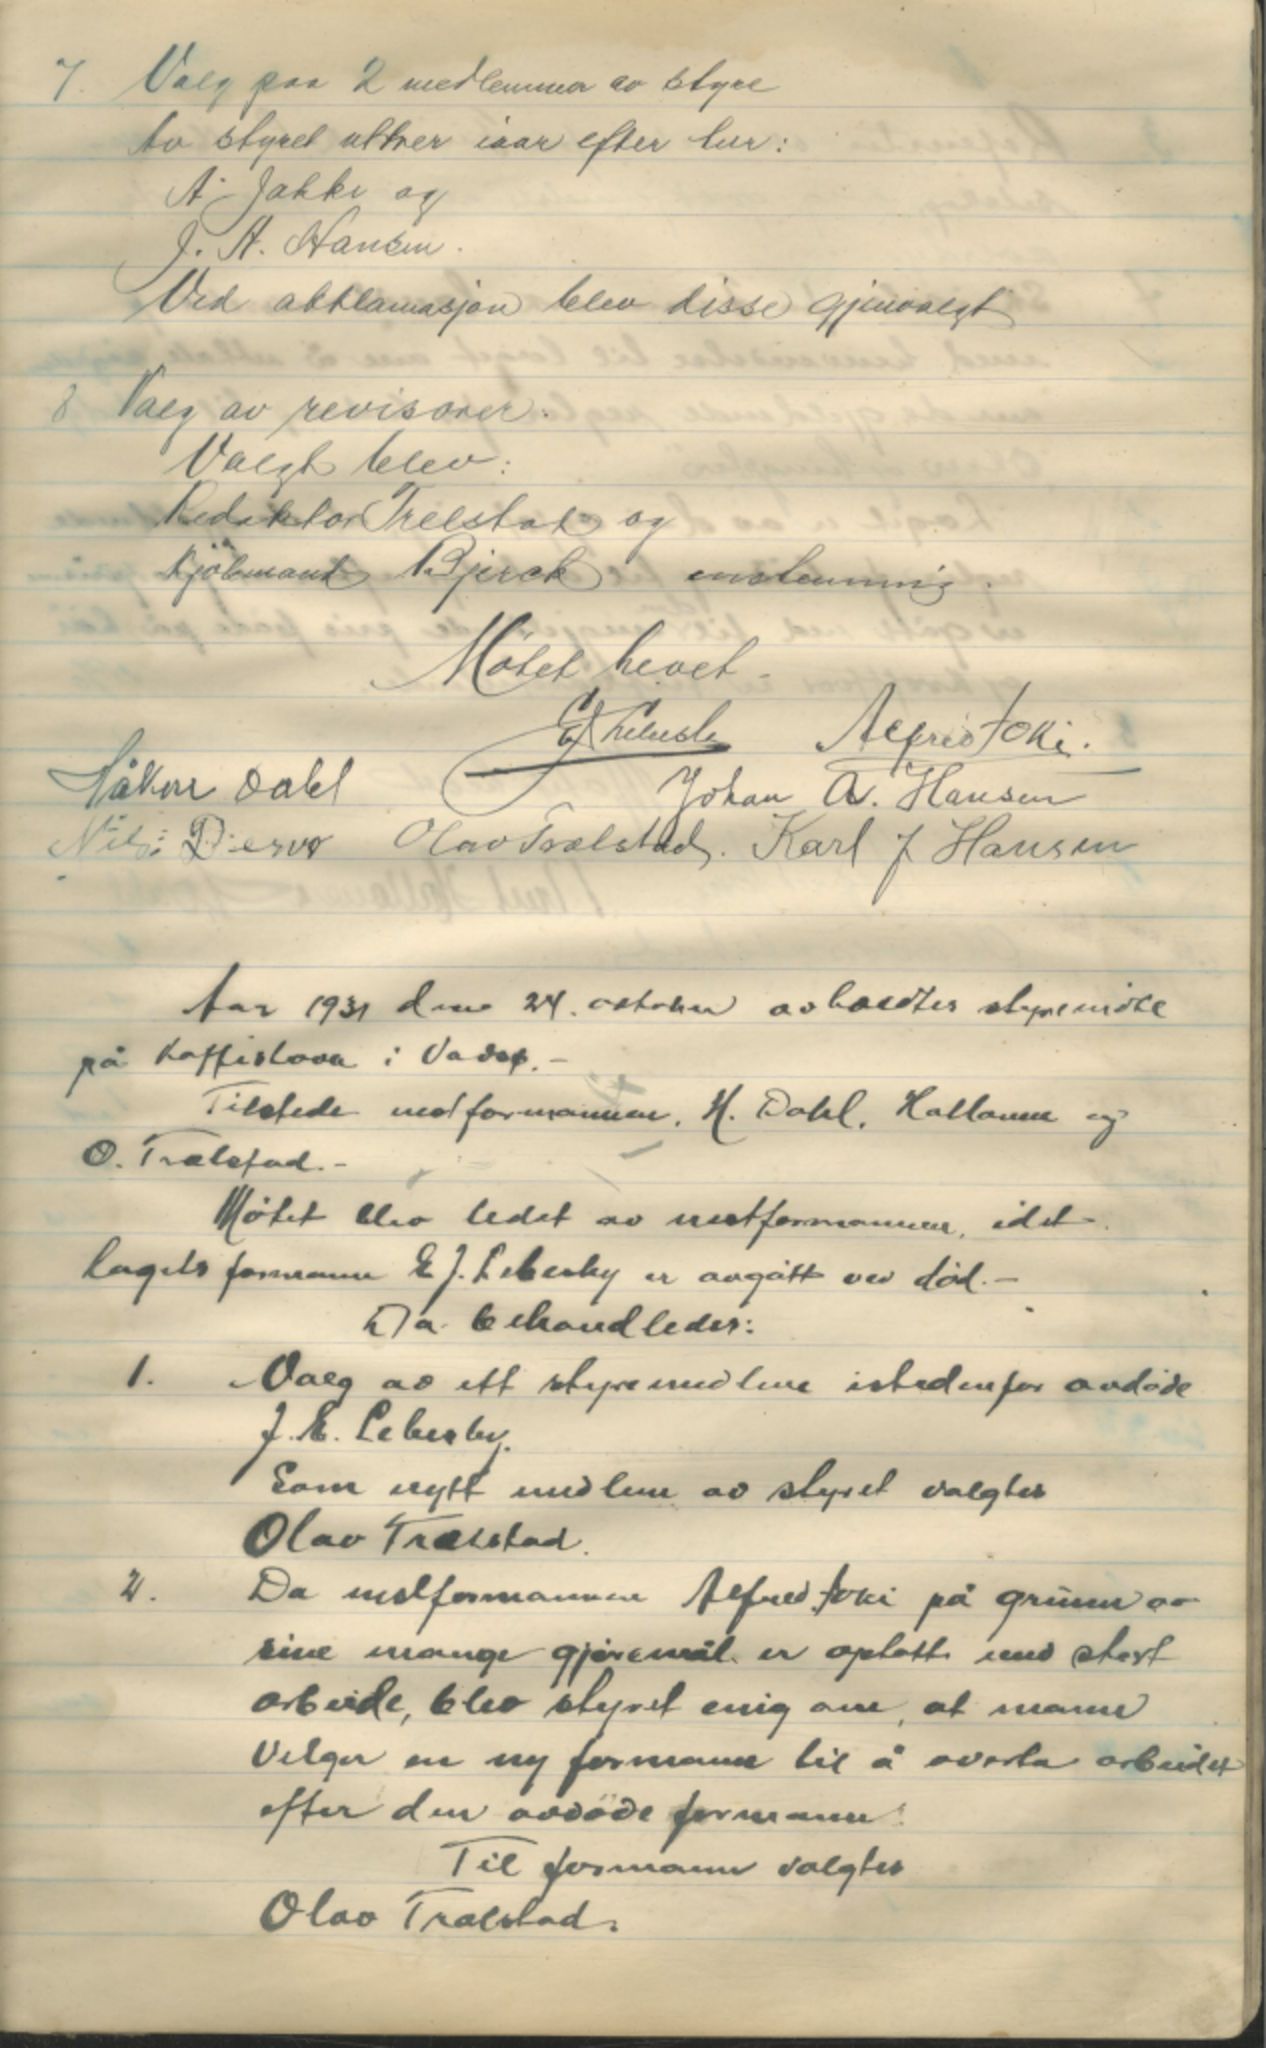 7. Valg paa 2 medlemmer av styre
Av styret uttrer iaar efter tur:
A. Jokki og
J. A. Hansen.
Ved akklamasjon blev disse gjenvalgt
8 Valg av revisorer.
Valgt blev:
Redaktør Trelstad og
Kjöbmand Bjerck enstemmig.
Møtet hevet.
Alfred Joki.
Håkon Dahl Johan A. Hansen
Nils Dervo Olav Trælstad. Karl J Hansen
Aar 1931 den 24. oktober avholdtes styremöte
på Kaffistova i Vadsø.-
Tilstede nestformannen, H. Dahl, og
O. Trælstad.-
Møtet blev ledet av nestformannen, idet
lagets formann E J. Lebesby er avgått ved död.-
Da behandledes:
1. Valg av ett styremedlem istedenfor avdöde
J. E. Lebesby.
Som nytt medlem av styret valgtes
Olav Trælstad.
2. Da nestformannen Alfred Joki på grunn av
sine mange gjöremål er optatt med stort
arbeide, blev styret enig om, at mann
velger en ny formann til å overta arbeidet
efter den avdöde formann.
Til formann valgtes
Olav Trælstad.